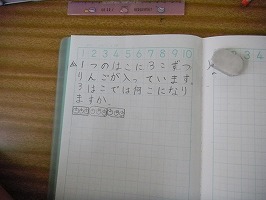 1 2 3 4 5 6 7 8 9 10
1つのはこに3こずつ
りんごが入っています。
3はこでは何こになり
ますか。